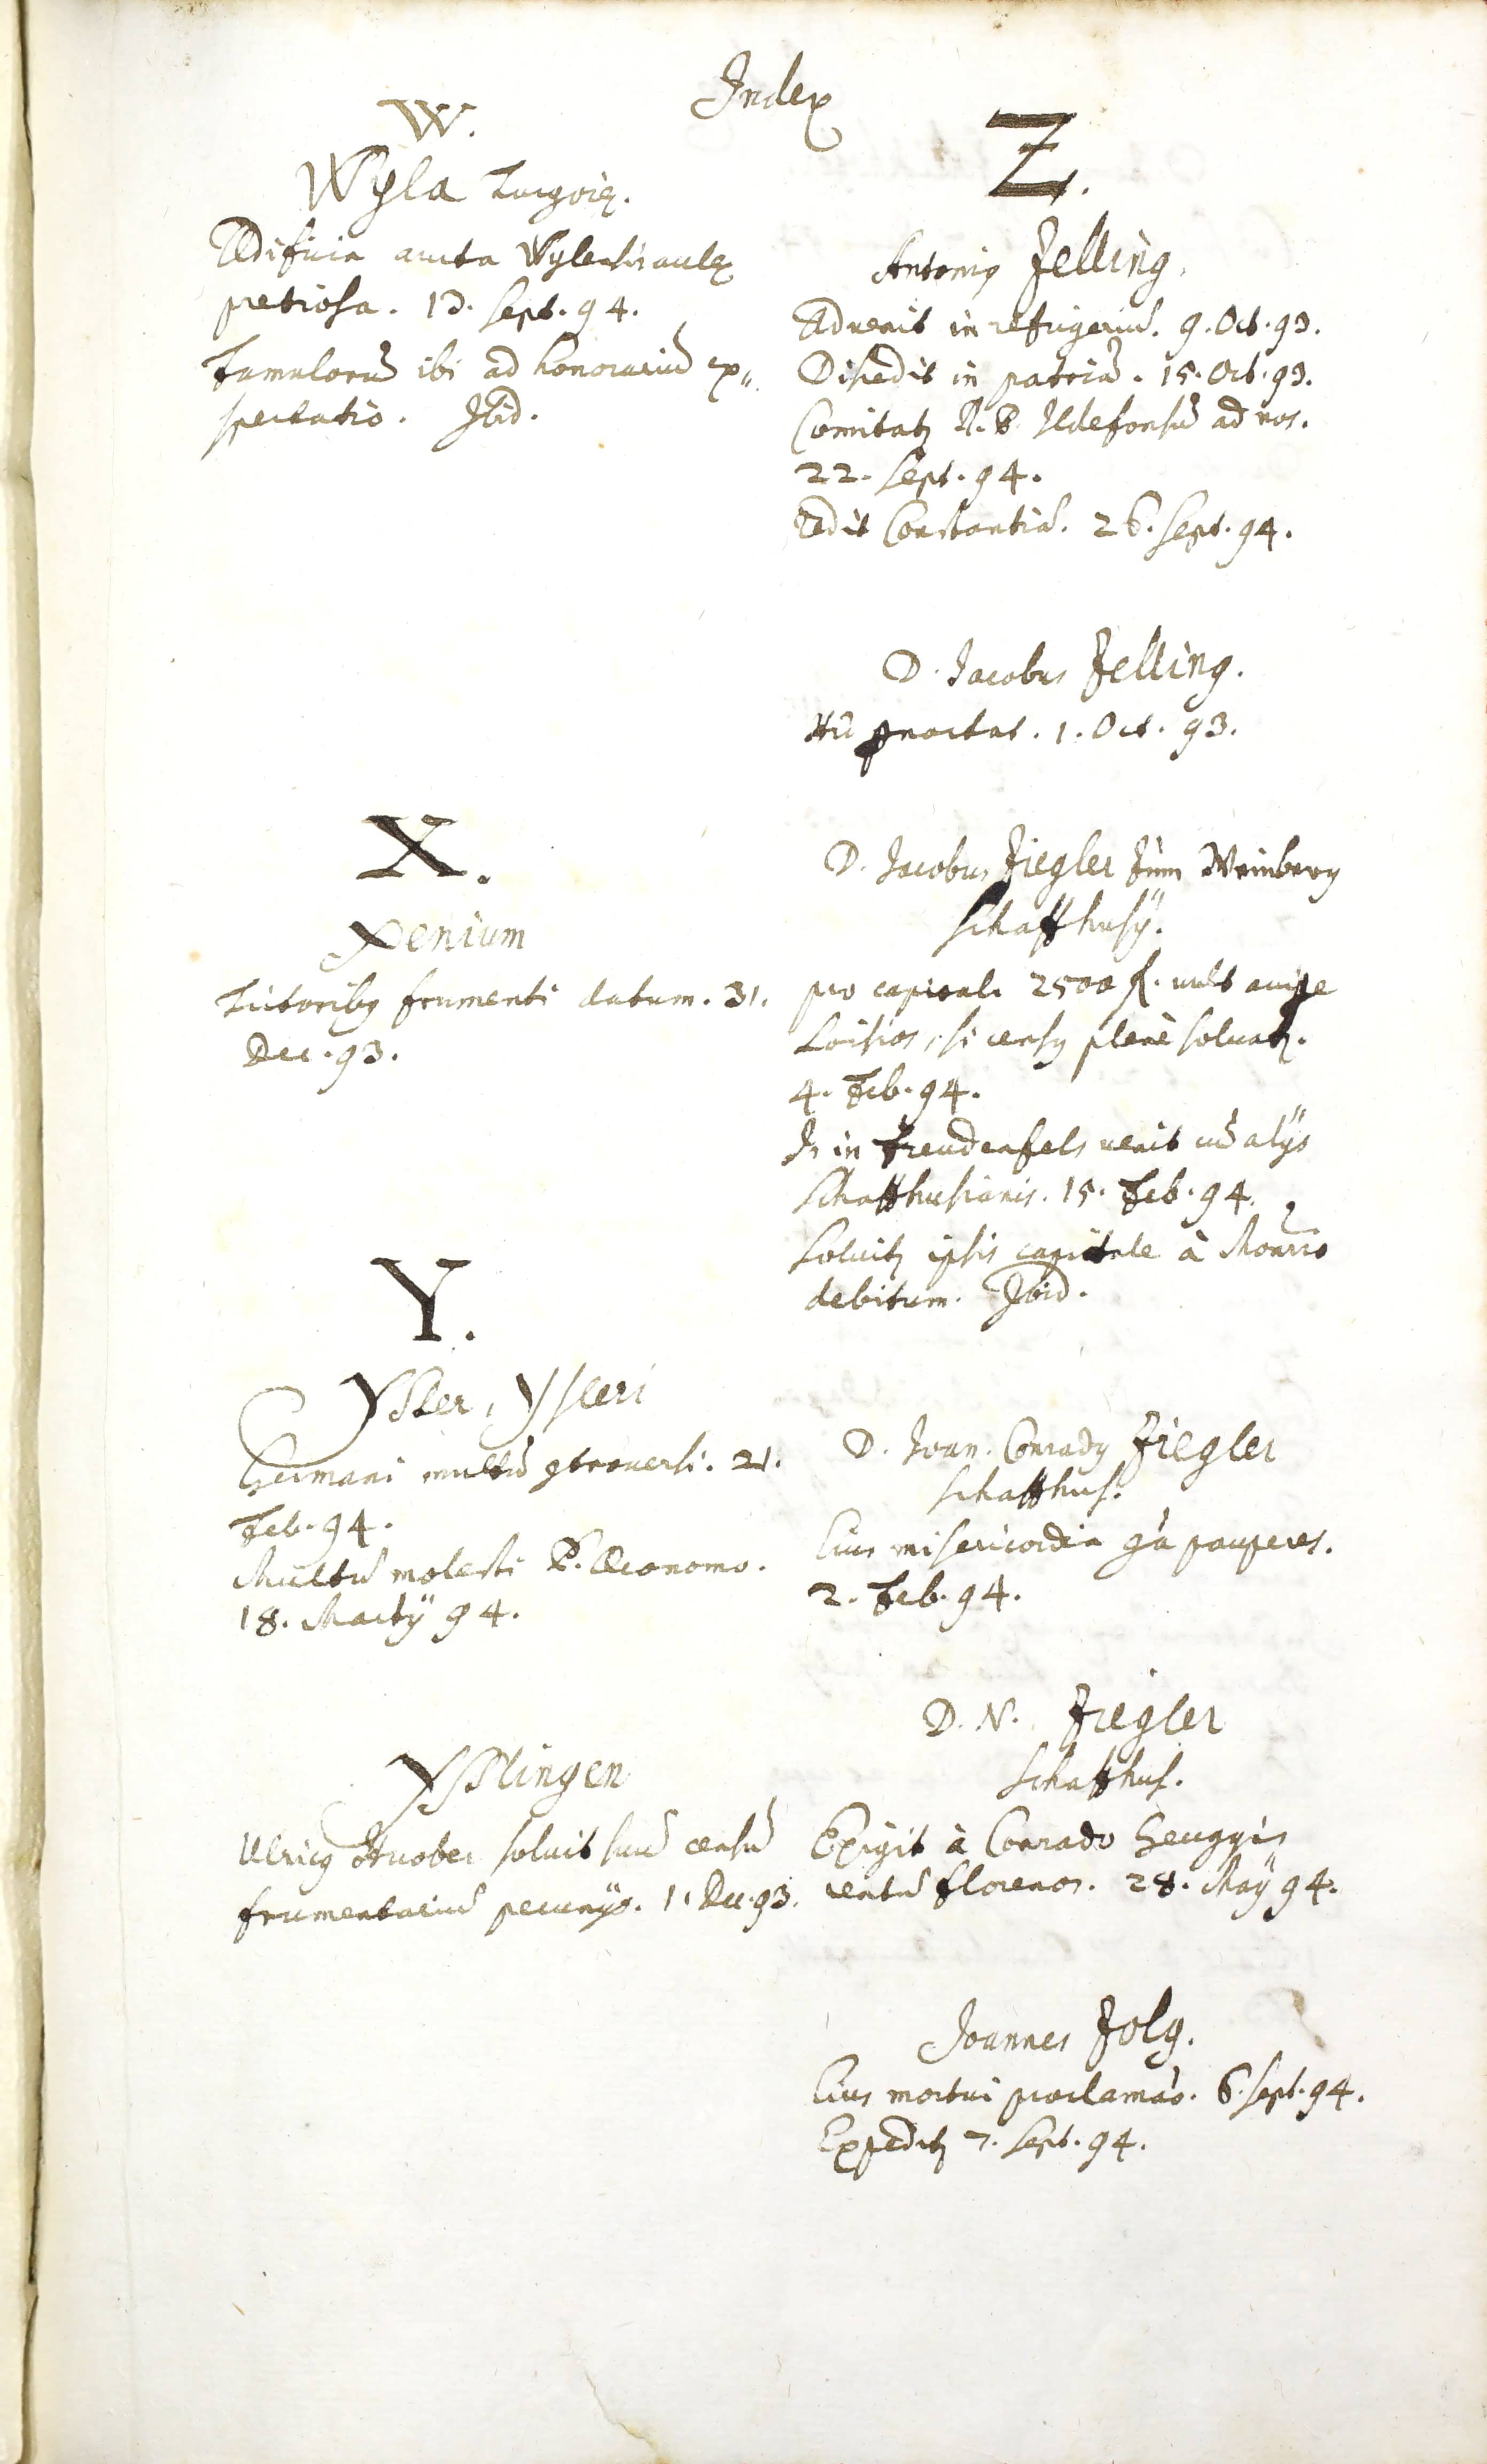 Index
W.
Wyla Turgoiæ.
Ædificia aucta Wylensis aulæ
pretiosa. 13. Sept. 94.
Famulorũ ibi ad honorariũ ex„
spectatio. Ibid.
X.
Xenium
Tritoribq frumenti datum. 31.
Dec. 93.
Y.
Ysler, Ysleri
Germani multũ 9trouersi. 21.
Feb. 94.
Multũ molesti P. Œconomo.
18. Martÿ 94.
Yslingen
Ulricq Huober soluit suũ censũ
frumentariũ pecunÿs. 1. Dec. 93.
Z.
Antoniq Zelling.
Aduenit in refrigeriũ. 9. Oct. 93.
Discedit in patriã. 15. Oct. 93.
Comitatq R. P. Ildefonsũ ad nos.
22. Sept. 94.
Redit Constantiã. 26. Sept. 94.
D. Jacobus Zelling.
Hic pnoctat. 1. Oct. 93.
D. Jacobus Ziegler Zum Weinberg
Schaffhusÿ.
pro capitali 2500 fl. uult
si censq plenè soluatq.
4. Feb. 94.
Is in Freudenfels uenit cũ alÿs
Schaffhusianis. 15. Feb. 94.
Soluitq ipsis capitale à Monrio
debitum. Ibid.
D. Joan. Conradq Ziegler
Schaffhus.
Eius misericordia ga pauperes.
2. Feb. 94.
D. N. Ziegler
Schaffhus.
Exigit à Conrado Genggis
centũ florenos. 28. Maÿ 94.
Joannes Zolg.
Eius mortui proclamao. 6. Sept. 94.
Expeditq 7. Sept. 94.